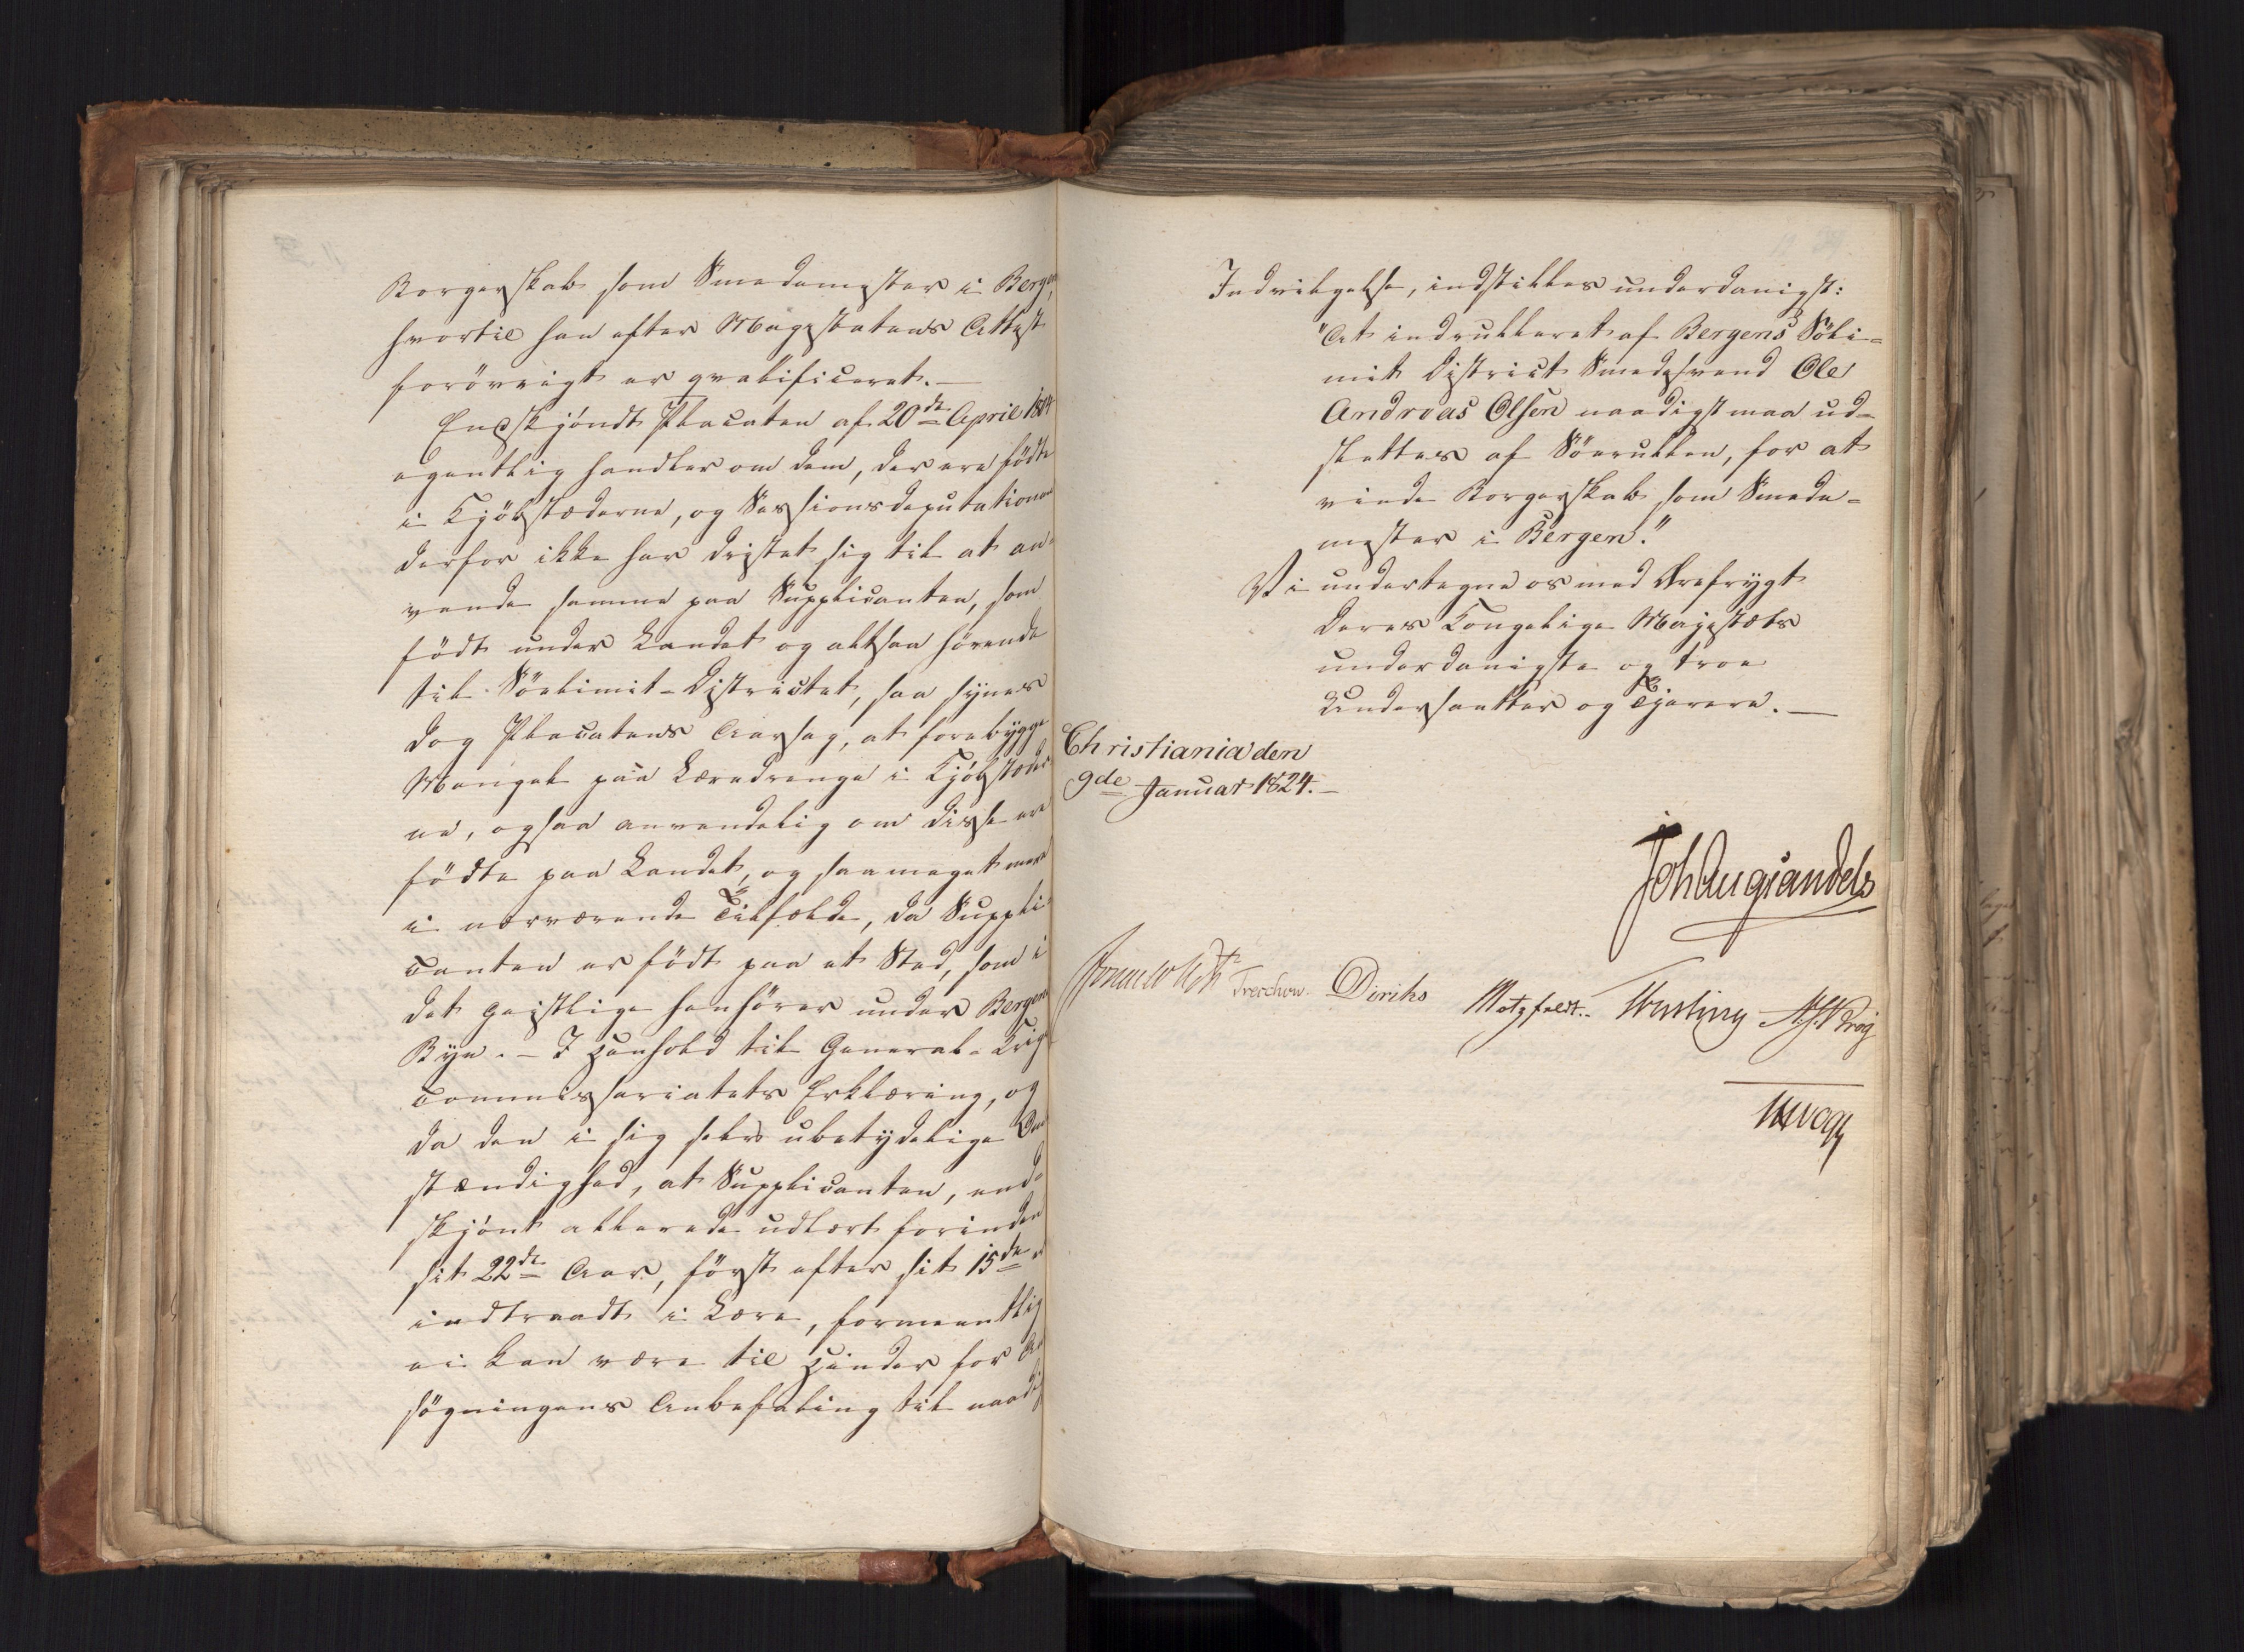 Borgerskab som Smedemester i Bergen,
hvortil han efter Magistratens Attest
forövrigt er qvalificeret. —
Endskjöndt Placaten af 20de April 1804
egentlig handler om dem, der ere födte
i Kjöbstæderne, og Sessionsdeputationen
derfor ikke har dristet sig til at an-
vende samme paa Supplicanten, som
födt under Landet og altsaa hörende
til Sölimit-Districtet, saa synes
dog Placatens Aarsag, at forebygge
Mangel paa Læredrenge i Kjöbstæder-
ne, ogsaa anvendelig om disse ere
födte paa Landet, og saameget mere
i nærværende Tilfælde, da Suppli-
canten er födt paa et Sted, som i
det geistlige henhörer under Bergens
Bye. — I Henhold til General-Krigs
commissariatets Erklæring, og
da den i sig selv ubetydelige Om-
stændighed, at Supplicanten, end-
skjönt allerede udlært forinden
sit 22de Aar, först efter sit 15de er
indtraadt i Lære, formeentlig
ei kan være til Hinder for An-
sögningens Anbefaling til naadig
Indvilgelse, indstilles underdanigst:
"At indrulleret af Bergens Söli-
mit District Smedesvend Ole
Andreas Olsen naadigst maa ud-
slettes af Söerullen, for at
vinde Borgerskab som Smede-
mester i Bergen."
Vi undertegne os med Ærefrygt
Deres Kongelige Majestæts
underdanigste og troe
Undersaatter og Tjenere. —
Christiania den
9de Januar 1824. —
Joh Aug Sandels
Treschow. Diriks Motzfeldt. N. J. Krog